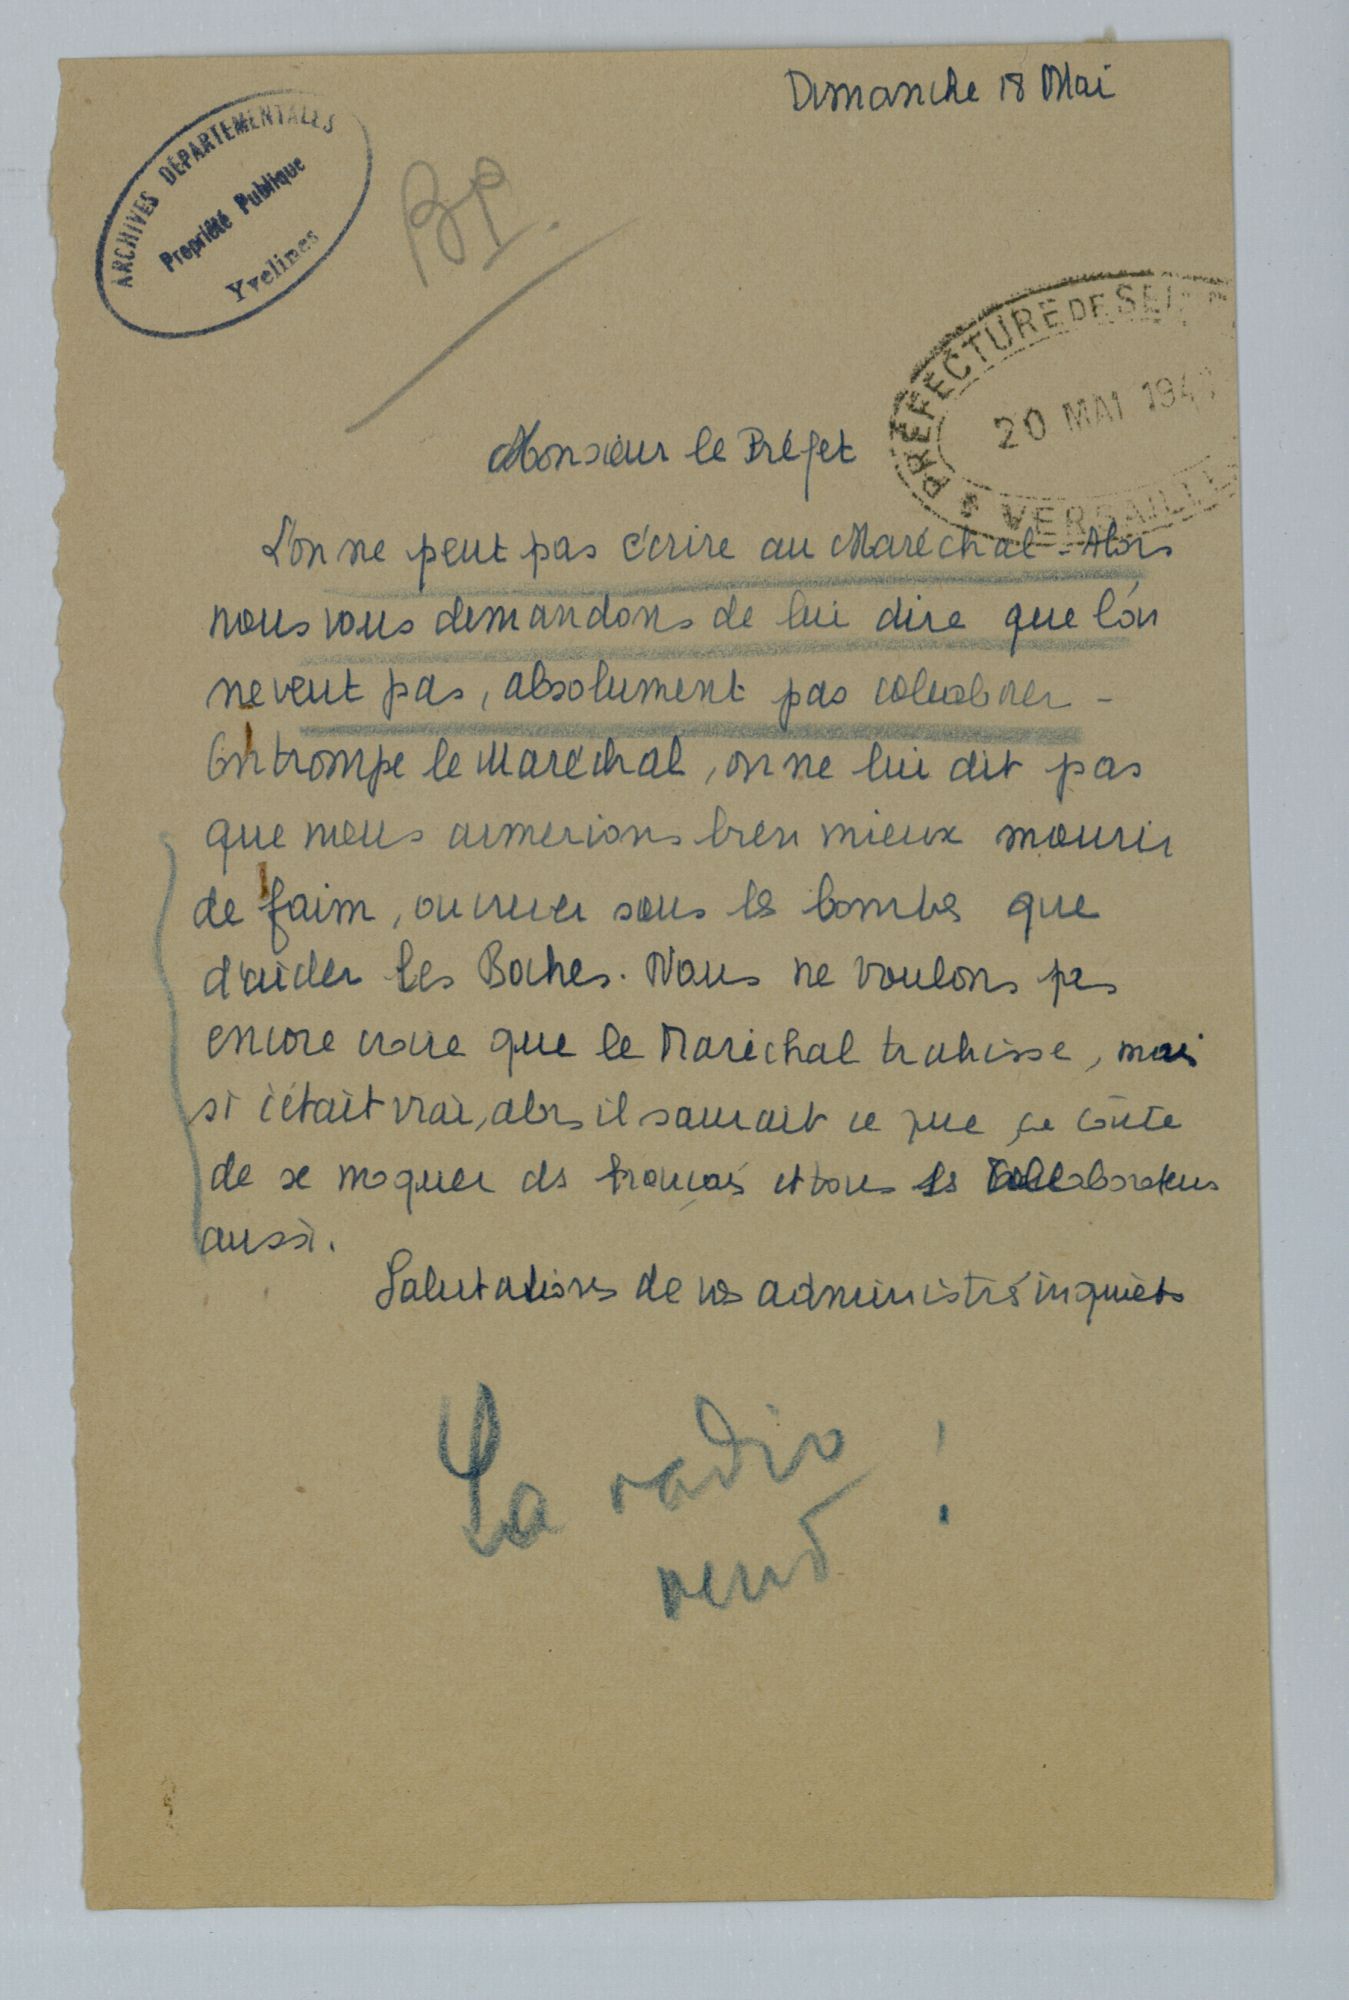 Dimanche 18 Mai
ARCHIVES DÉPARTEMENTALES
Propriété Publique
Yvelines
BP.
PRÉFECTURE DE SEINE
20 MAI 194
VERSAILLES
Monsieur le Préfet
L'on ne peut pas écrire au Maréchal - Alors
nous vous demandons de lui dire que l'on
ne veut pas, absolument pas collaborer -
On trompe le Maréchal, on ne lui dit pas
que nous aimerions bien mieux mourir
de faim, ou crever sous les bombes que
d'aider les Boches. Nous ne voulons pas
encore croire que le Maréchal trahisse, mais
si c'était vrai, alors il saurait ce que ça coûte
de se moquer des français et tous les Collaborateurs
aussi.
Salutations de vos administrés inquiets
La radio
rend !